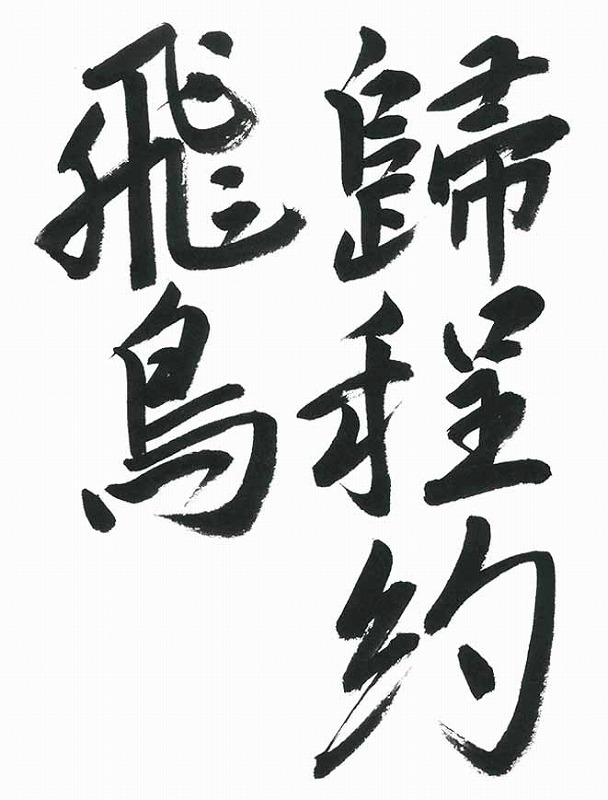 歸程約
飛鳥